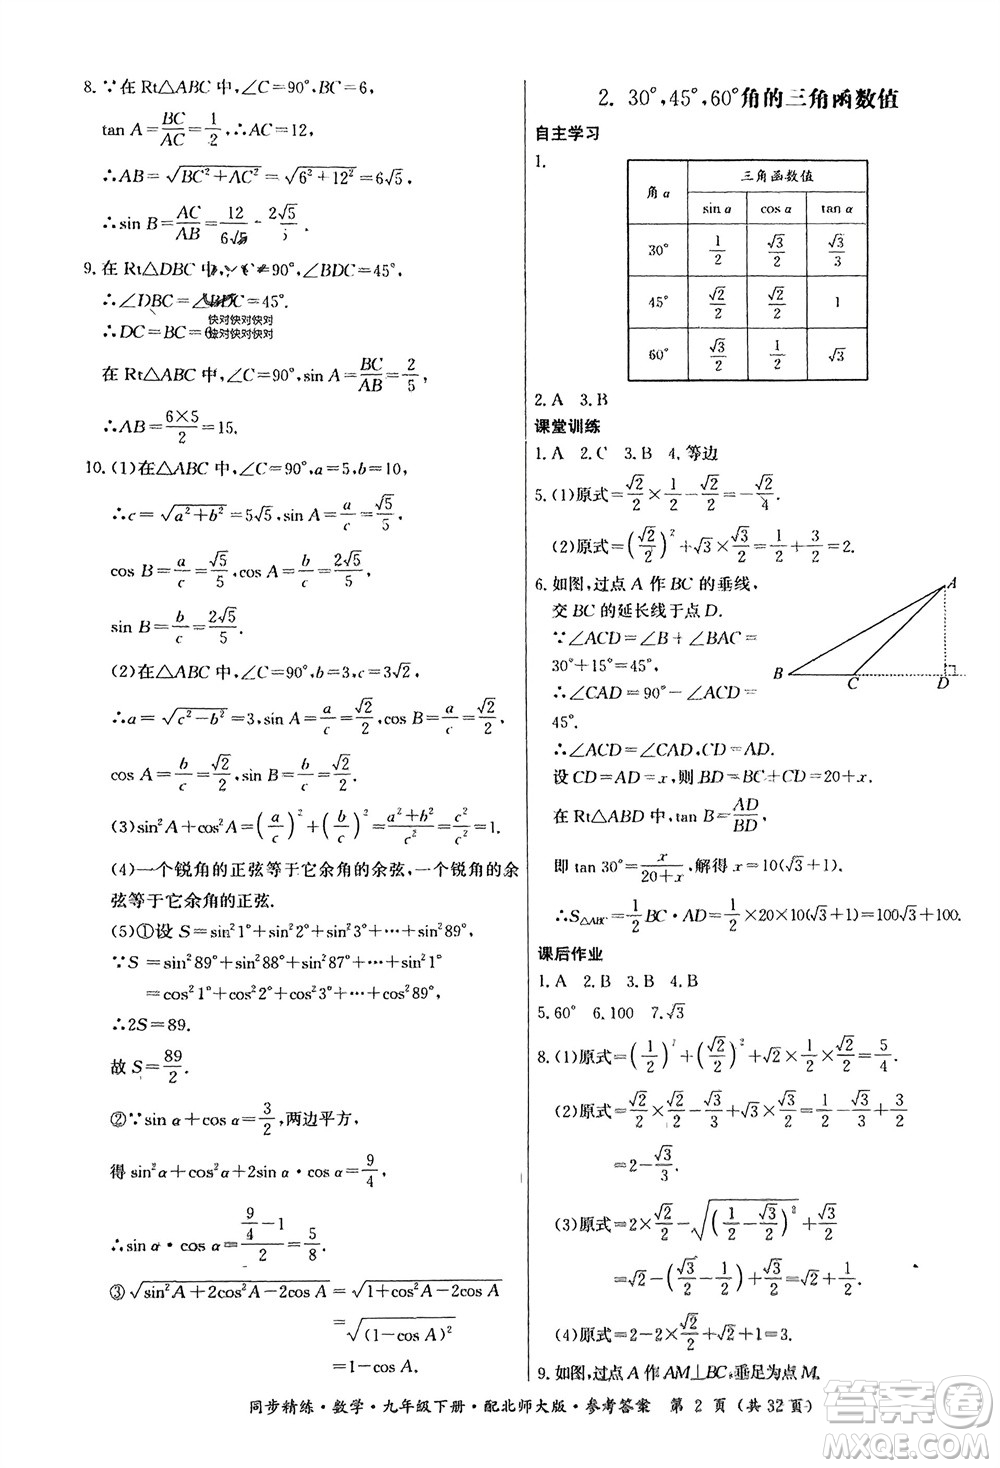 8. ∵在 Rt△ABC 中,∠C=90°,BC=6,
tan A=BC/AC=1/2,∴AC=12,
∴AB=√(BC²+AC²)=√(6²+12²)=6√5,
∴sin B=AC/AB=12/6√5=2√5/5
9. 在 Rt△DBC 中,∠C=90°,∠BDC=45°,
∴∠DBC=∠BDC=45°.
快对快对快对
∴DC=BC=6
快对快对快对
在 Rt△ABC 中,∠C=90°,sin A=BC/AB=2/5,
∴AB=6×5/2=15.
10. (1)在△ABC 中,∠C=90°,a=5,b=10,
∴c=√(a²+b²)=5√5,sin A=a/c=√5/5
cos B=a/c=√5/5,cos A=b/c=2√5/5,
sin B=b/c=2√5/5.
(2)在△ABC 中,∠C=90°,b=3,c=3√2,
∴a=√(c²−b²)=3,sin A=a/c=√2/2,cos B=a/c=√2/2,
cos A=b/c=√2/2,sin B=b/c=√2/2.
(3)sin²A+cos²A=(a/c)²+(b/c)²=(a²+b²)/c²=c²/c²=1.
(4)一个锐角的正弦等于它余角的余弦,一个锐角的余
弦等于它余角的正弦.
(5)①设 S=sin²1°+sin²2°+sin²3°+…+sin²89°,
∵S=sin²89°+sin²88°+sin²87°+…+sin²1°
=cos²1°+cos²2°+cos²3°+…+cos²89°,
∴2S=89.
故 S=89/2.
②∵sin α+cos α=3/2,两边平方,
得 sin²α+cos²α+2sin α·cos α=9/4,
∴sin α·cos α=(9/4−1)/2=5/8.
③√(sin²A+2cos²A−2cos A)=√(1+cos²A−2cos A)
=√((1−cos A)²)
=1−cos A.
2. 30°,45°,60°角的三角函数值
自主学习
1.
角 α 三角函数值
sin α cos α tan α
30° 1/2 √3/2 √3/3
45° √2/2 √2/2 1
60° √3/2 1/2 √3
2. A 3. B
课堂训练
1. A 2. C 3. B 4. 等边
5. (1)原式=√2/2×1/2−√2/2=−√2/4.
(2)原式=(√2/2)²+√3×√3/2=1/2+3/2=2.
6. 如图,过点 A 作 BC 的垂线,
交 BC 的延长线于点 D.
∵∠ACD=∠B+∠BAC=
30°+15°=45°,
∴∠CAD=90°−∠ACD=
45°.
∴∠ACD=∠CAD,CD=AD.
设 CD=AD=x,则 BD=BC+CD=20+x.
在 Rt△ABD 中,tan B=AD/BD,
即 tan 30°=x/(20+x),解得 x=10(√3+1).
∴S△ABC=1/2BC·AD=1/2×20×10(√3+1)=100√3+100.
A
B
C
D
课后作业
1. A 2. B 3. B 4. B
5. 60° 6. 100 7. √3
8. (1)原式=(1/2)²+(√2/2)²+√2×√2/2×1/2=5/4.
(2)原式=√2/2×√2/2−√3/3+√3×√3/2
=2−√3/3.
(3)原式=2×√2/2−√((1/2−√3/2)²)+√3/2
=√2−(√3/2−1/2)+√3/2=√2+1/2.
(4)原式=2−2×√2/2+√2+1=3.
9. 如图,过点 A 作 AM⊥BC,垂足为点 M.
同步精练·数学·九年级下册·配北师大版·参考答案 第 2 页 (共 32 页)
答案圈
MXQE.COM